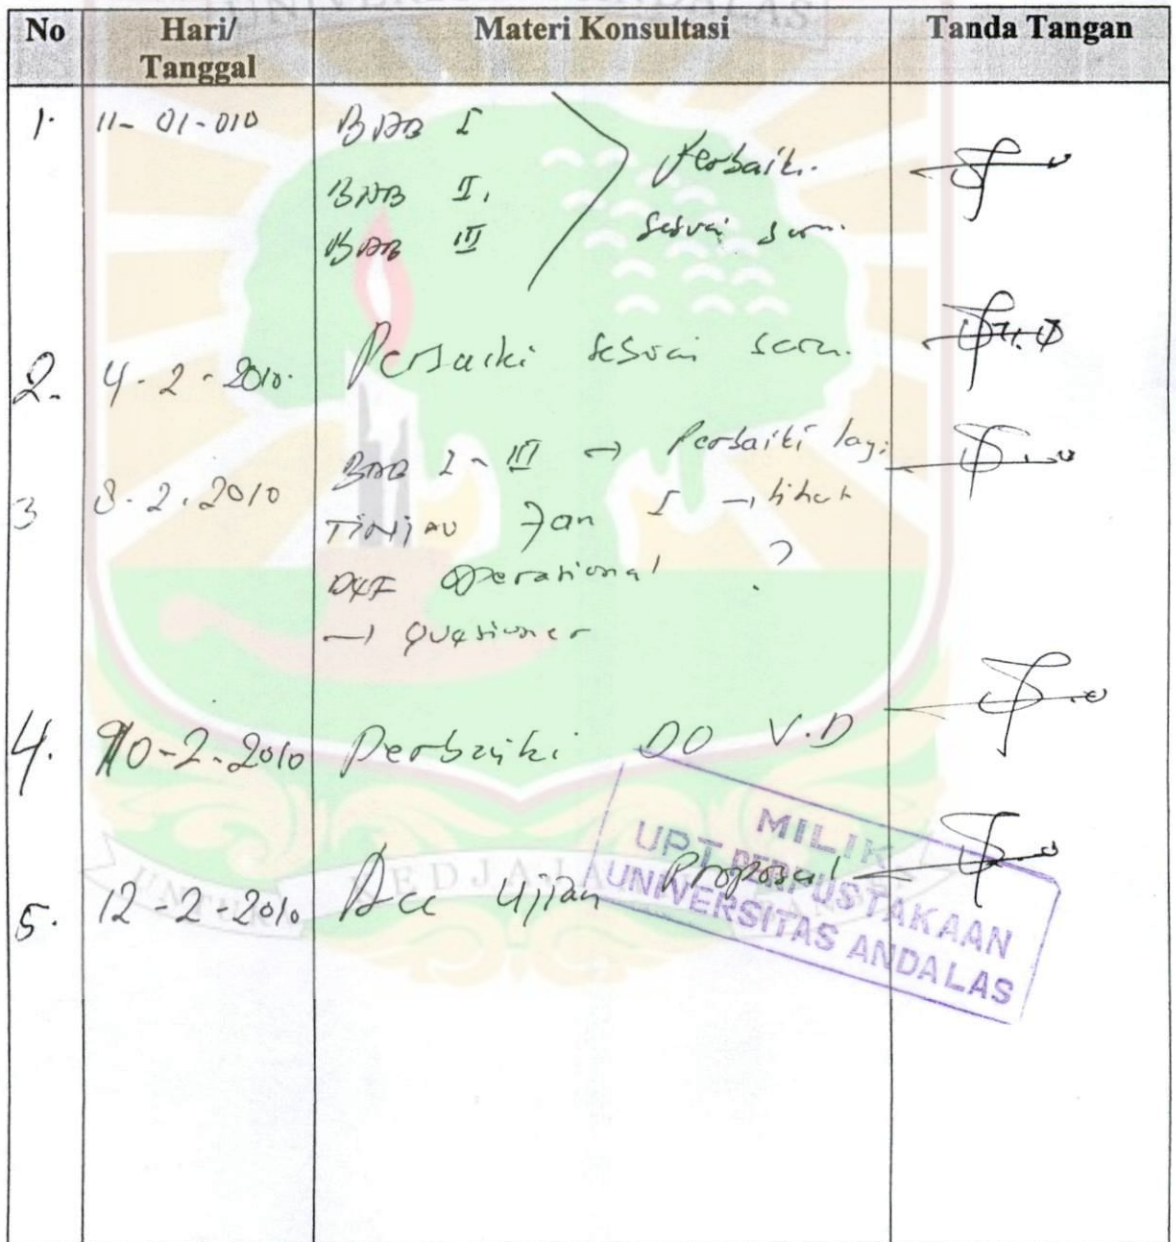 UNIVERSITAS ANDALAS
No Hari/ Tanggal Materi Konsultasi Tanda Tangan
1. 11-01-010 BAB I
BAB II.
BAB III
Perbaiki
sesuai saran.
2. 4-2-2010. Perbaiki sesuai saran.
3 8-2.2010 BAB I - III → Perbaiki lagi
TINJAU I → lihat
DEF Operasional ?
→ Quesioner
4. 10-2-2010 Perbaiki DO V.D
5. 12-2-2010 Acc Ujian Proposal
MILIK
UPT PERPUSTAKAAN
UNIVERSITAS ANDALAS